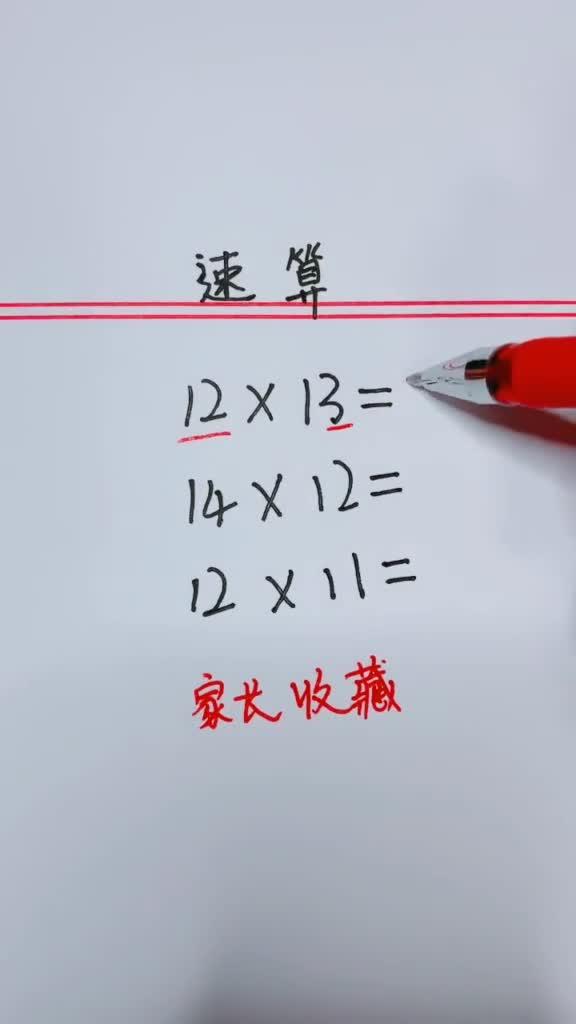 速算
12×13=
14×12=
12×11=
家长收藏